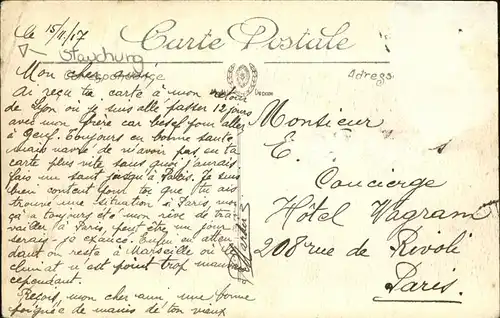 Le 15/11/17
Carte Postale
Correspondance
Adresse
Mon cher ami
Ai reçu ta carte à mon retour
de Lyon où je suis allé passer 12 jours
avec mon frère car besef pour aller
à Toujours en bonne santé
Mais navré de n'avoir pas eu ta
carte plus vite sans quoi j'aurais
fais un saut jusqu'à Paris. Je suis
bien content pour toi que tu ais
trouvé une situation à Paris, moi
ça a toujours été mon rêve de tra-
vailler à Paris, peut être un jour
serais-je exaucé. Enfin en atten-
dant on reste à Marseille où le
climat n'est point trop mauvais
cependant.
Reçois, mon cher ami, une bonne
poignée de mains de ton vieux
Monsieur
E. s
Concierge
Hôtel Wagram
208 rue de Rivoli
Paris.